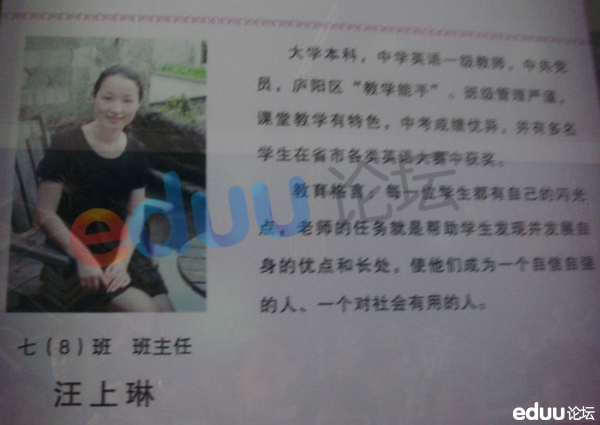 大学本科，中学英语一级教师，中共党
员，庐阳区“教学能手”。班级管理严谨，
课堂教学有特色，中考成绩优异，并有多名
学生在省市各类英语大赛中获奖。
教育格言：每一位学生都有自己的闪光
点，老师的任务就是帮助学生发现并发展自
身的优点和长处，使他们成为一个自信自强
的人、一个对社会有用的人。
eduu论坛
七（8）班 班主任
汪上琳
eduu论坛